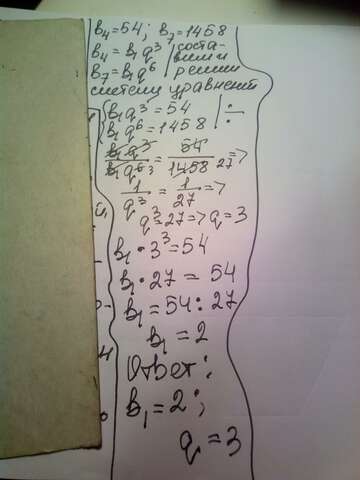 в₄ = 54; в₇ = 1458
в₄ = в₁q³ | соста-
вим и
в₇ = в₁q⁶ | решим
систему уравнений
{ в₁q³ = 54
{ в₁q⁶ = 1458 | ÷
в₁q³ / в₁q⁶ 3 = 54 / 1458 27 =>
1 / q³ = 1 / 27 =>
q³ = 27 => q = 3
в₁ · 3³ = 54
в₁ · 27 = 54
в₁ = 54 : 27
в₁ = 2
Ответ:
в₁ = 2;
q = 3